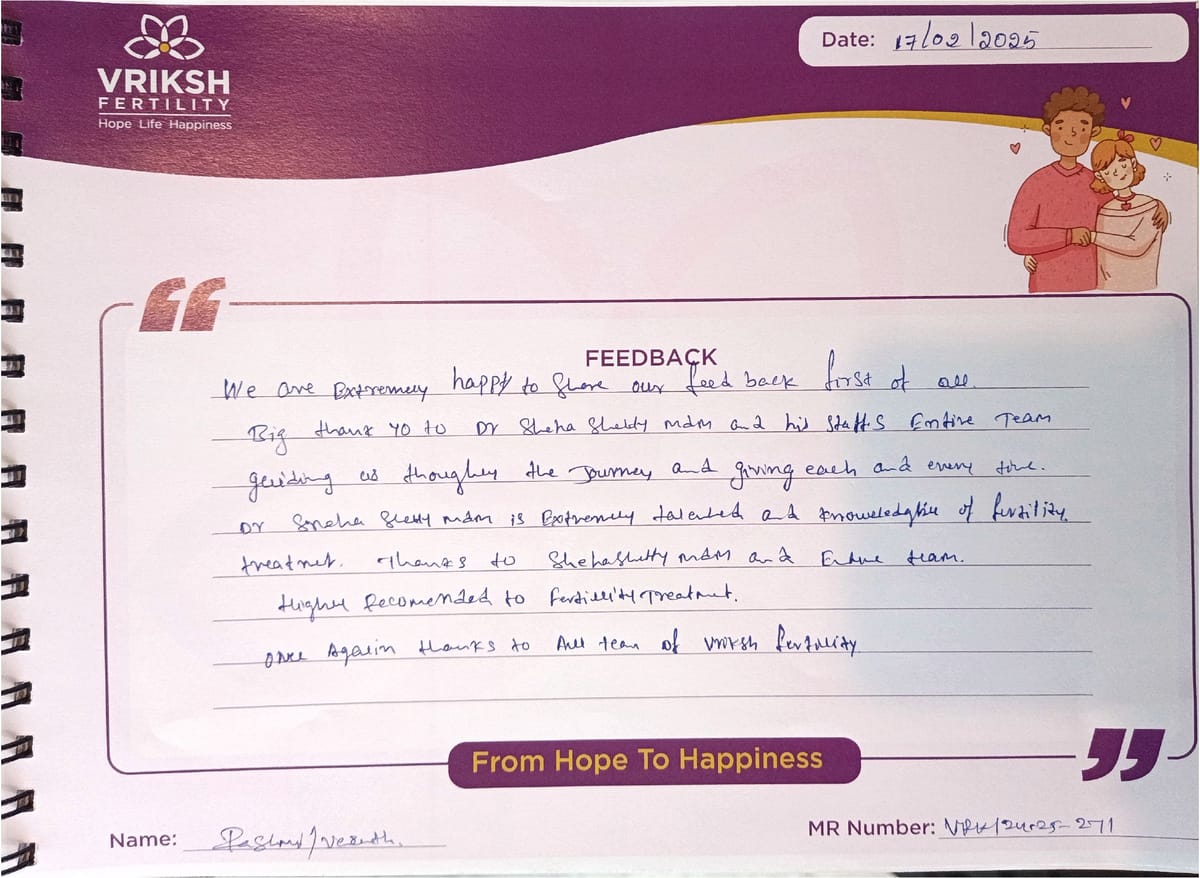 VRIKSH
FERTILITY
Hope Life Happiness
Date: 17/02/2025
FEEDBACK
We are Extremely happy to Share our feed back first of all.
Big thank yo to Dr Sheha Shetty mam and his staffs Entire Team
guiding us the Journey and giving each and every time.
Dr Sneha Shetty mam is Extremely talented and of fertility
treatmet. Thanks to Shehashetty mam and Entire team.
Highly Recomended to fertility Treatment.
Once Again thanks to All team of Vriksh fertility
From Hope To Happiness
Name:
MR Number: VRK/24-25-271